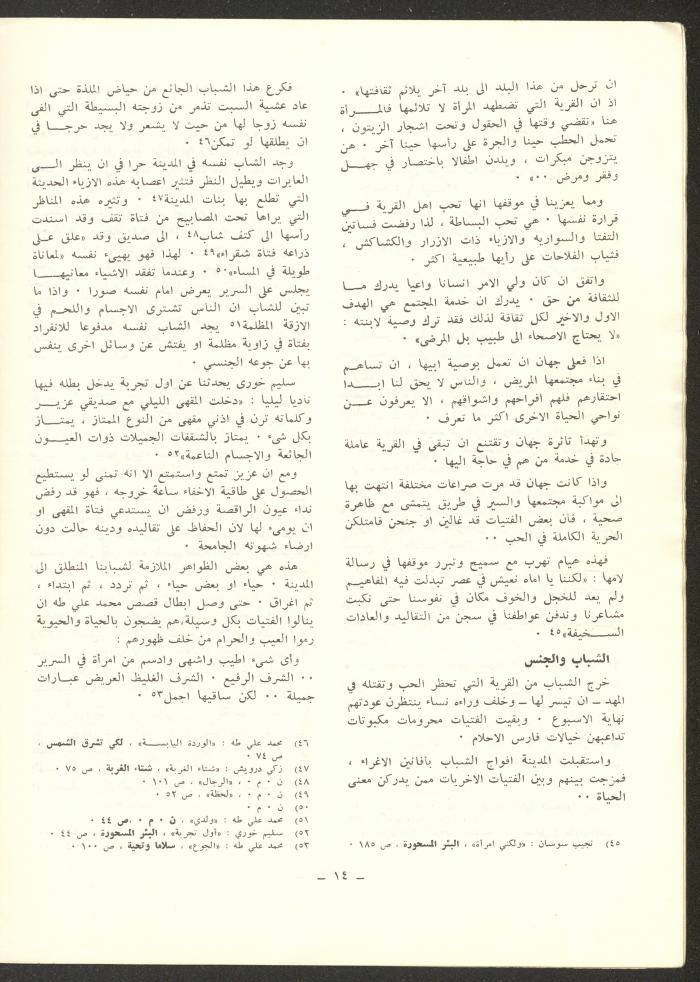 ان ترحل من هذا البلد الى بلد آخر يلائم ثقافتها» ٠
اذ ان القرية التي تضطهد المرأة لا تلائمها فالمـــرأة
هنا «تقضي وقتها في الحقول وتحت اشجار الزيتون ،
تحمل الحطب حينا والجرة على رأسها حينا آخر ٠ هن
يتزوجن مبكرات ، ويلدن اطفالا باختصار في جهــل
وفقر ومرض ٠٠»
ومما يعزينا في موقفها انها تحب اهل القرية فـــي
قرارة نفسها ٠ هي تحب البساطة ، لذا رفضت فساتين
التفتا والسواريه والازياء ذات الازرار والكشاكش ،
فثياب الفلاحات على رأيها طبيعية اكثر ٠
واتفق ان كان ولي الامر انسانا واعيا يدرك مـــا
للثقافة من حق ٠ يدرك ان خدمة المجتمع هي الهدف
الاول والاخير لكل ثقافة لذلك فقد ترك وصية لابنته :
«لا يحتاج الاصحاء الى طبيب بل المرضى» ٠
اذا فعلى جهان ان تعمل بوصية ابيها ، ان تساهــم
في بناء مجتمعها المريض ، والناس لا يحق لنا ابـــدا
احتقارهم فلهم افراحهم واشواقهم ، الا يعرفون عـــن
نواحي الحياة الاخرى اكثر ما تعرف ٠
وتهدأ ثائرة جهان وتقتنع ان تبقى في القرية عاملة
جادة في خدمة من هم في حاجة إليها ٠
واذا كانت جهان قد مرت صراعات مختلفة انتهت بها
الى مواكبة مجتمعها والسير في طريق يتمشى مع ظاهرة
صحية ، فان بعض الفتيات قد غالين او جنحن فامتلكن
الحرية الكاملة في الحب ٠٠
فهذه هيام تهرب مع سميح وتبرر موقفها في رسالة
لامها : «لكننا يا اماه نعيش في عصر تبدلت فيه المفاهيــم
ولم يعد للخجل والخوف مكان في نفوسنا حتى نكبت
مشاعرنا وندفن عواطفنا في سجن من التقاليد والعادات
الســـخيفة»٤٥ ٠
الشباب والجنس
خرج الشباب من القرية التي تحظر الحب وتقتله في
المهد ــ ان تيسر لها ــ وخلف وراءه نساء ينتظرن عودتهم
نهاية الاسبوع ٠ وبقيت الفتيات محرومات مكبوتات
تداعبهن خيالات فارس الاحلام ٠
واستقبلت المدينة افواج الشباب بافانين الاغراء ،
فمزجت بينهم وبين الفتيات الاخريات ممن يدركن معنى
الحياة ٠٠
٤٥) نجيب سوسان : «ولكني امرأة» ، البئر المسحورة ، ص ١٨٥ ٠
فكرع هذا الشباب الجائع من حياض الملذة حتى اذا
عاد عشية السبت تذمر من زوجته البسيطة التي الفى
نفسه زوجا لها من حيث لا يشعر ولا يجد حرجـــا في
ان يطلقها لو تمكن٤٦ ٠
وجد الشاب نفسه في المدينة حرا في ان ينظر الــى
العابرات ويطيل النظر فتثير اعصابه هذه الازياء الحديثة
التي تطلع بها بنات المدينة٤٧ ٠ وتثيره هذه المناظر
التي يراها تحت المصابيح من فتاة تقف وقد اسندت
رأسها الى كتف شاب٤٨ ، الى صديق وقد «علق علــى
ذراعه فتاة شقراء»٤٩ ٠ لهذا فهو يهيىء نفسه «لمعاناة
طويلة في المساء»٥٠ ٠ وعندما تفقد الاشياء معانيهـــا
يجلس على السرير يعرض امام نفسه صورا ٠ واذا ما
تبين للشاب ان الناس تشترى الاجسام واللحــم في
الازقة المظلمة٥١ يجد الشاب نفسه مدفوعا للانفراد
بفتاة في زاوية مظلمة او يفتش عن وسائل اخرى ينفس
بها عن جوعه الجنسي ٠
سليم خورى يحدثنا عن اول تجربة يدخل بطله فيها
ناديا ليليا : «دخلت المقهى الليلي مع صديقي عزيــر
وكلماته ترن في اذني مقهى من النوع الممتاز ، يمتــاز
بكل شىء ٠ يمتاز بالشقفات الجميلات ذوات العيــون
الجائعة والاجسام الناعمة»٥٢ ٠
ومع ان عزيز تمتع واستمتع الا انه تمنى لو يستطيع
الحصول على طاقية الاخفاء ساعة خروجه ، فهو قد رفض
نداء عيون الراقصة ورفض ان يستدعي فتاة المقهى او
ان يومىء لها لان الحفاظ على تقاليده ودينه حالت دون
ارضاء شهوته الجامحة ٠
هذه هي بعض الظواهر الملازمة لشبابنا المنطلق الى
المدينة ٠ حياء او بعض حياء ، ثم تردد ، ثم ابتداء ،
ثم اغراق ٠ حتى وصل ابطال قصص محمد علي طه ان
ينالوا الفتيات بكل وسيلة،هم يضجون بالحياة والحيوية
رموا العيب والحرام من خلف ظهورهم :
وأى شىء اطيب واشهى وادسم من امرأة في السرير
٠٠ الشرف الرفيع ٠ الشرف الغليظ العريض عبـارات
جميلة ٠٠ لكن ساقيها اجمل٥٣ ٠
٤٦) محمد علي طه : «الوردة اليابســـة» ، لكي تشرق الشمس ،
ص ٧٤ ٠
٤٧) زكي درويش : «شتاء الغربة» ، شتاء الغربة ، ص ٧٥ ٠
٤٨) ن ٠ م ٠ ، «الرجال» ، ص ١٠١ ٠
٤٩) ن ٠ م ٠ ، «لحظة» ، ص ٥٢ ٠
٥٠) ن ٠ م ٠
٥١) محمد علي طه : «ولدي» ، ن ٠ م ٠ ،ص ٤٤ ٠
٥٢) سليم خوري : «أول تجربة» ، البئر المسحورة ، ص ٤٤ ٠
٥٣) محمد علي طه : «الجوع» ، سلاما وتحية ، ص ١٠٠ ٠
ــ ١٤ ــ